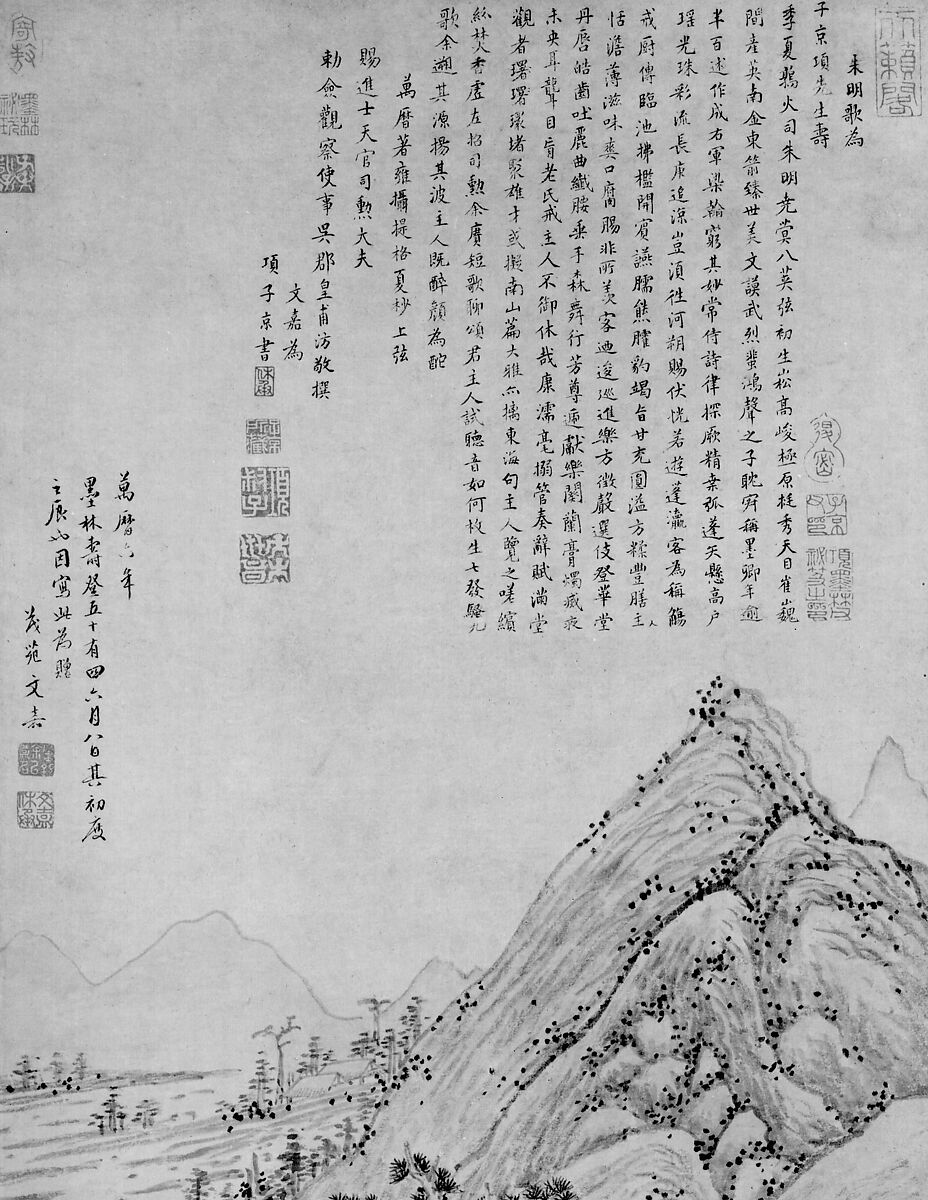 朱明歌為
子京項先生壽
季夏鶉火司朱明堯蓂八莢弦初生崧高峻極原挺秀天目崔巍
間產英南金東箭臻世美文謨武烈蜚鴻聲之子耽穽稱墨卿年逾
半百述作成右軍染翰窮其妙常侍詩律探厥精桒弧蓬矢懸高戶
瑤光珠彩流長庚追涼豈須徃河朔賜伏恍若遊蓬瀛客為稱觴
戒厨傳臨池拂檻開賓讌臑熊臛豹竭旨甘充圓溢方糅豐膳主人
恬澹薄滋味爽口腐腸非所羨客迺逡巡進樂方徵嚴選伎登華堂
丹唇皓齒吐麗曲纖腰垂手森舞行芳尊遞獻樂闋蘭膏燭滅夜
未央耳聾目盲老氏戒主人不御休哉康濡毫搦管奏辭賦滿堂
觀者環堵聚雄才或擬南山篇大雅亦摛東海句主人覽之嗟繽
紛焚香虛左招司勲余賡短歌聊頌君主人試聽音如何枚生七發騷九
歌余遡其源揚其波主人既醉顏為酡
萬曆著雍攝提格夏杪上弦
賜進士天官司勲大夫
勅僉觀察使事吳郡皇甫汸敬撰
文嘉為
項子京書
萬曆六年
墨林壽登五十有四六月八日其初度
之辰也因寫此為贈
茂苑文嘉